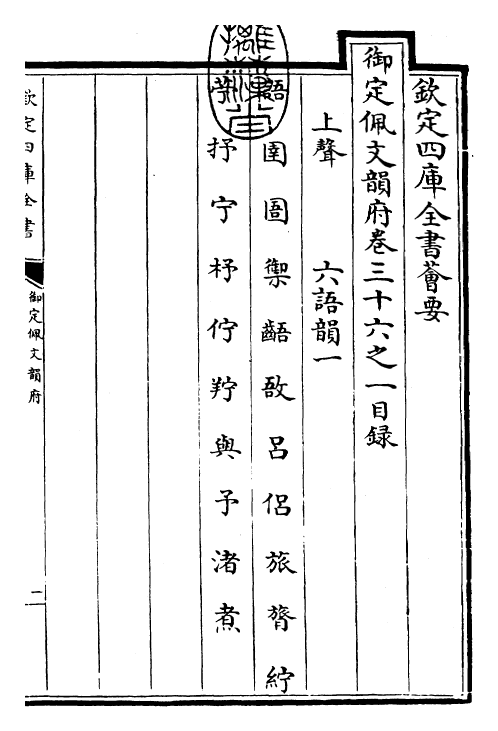 欽定四庫全書薈要
御定佩文韻府卷三十六之一目録
上聲 六語韻一
語圄圉禦齬敔呂侶旅膂紵
抒宁杼佇羜與予渚煮
欽定四庫全書
御定佩文韻府
二